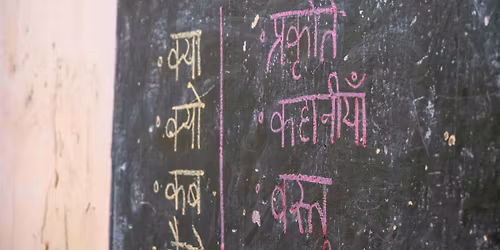 क्या
क्यों
कब
कैसे
प्रकृति
कहानीयाँ
वस्तु